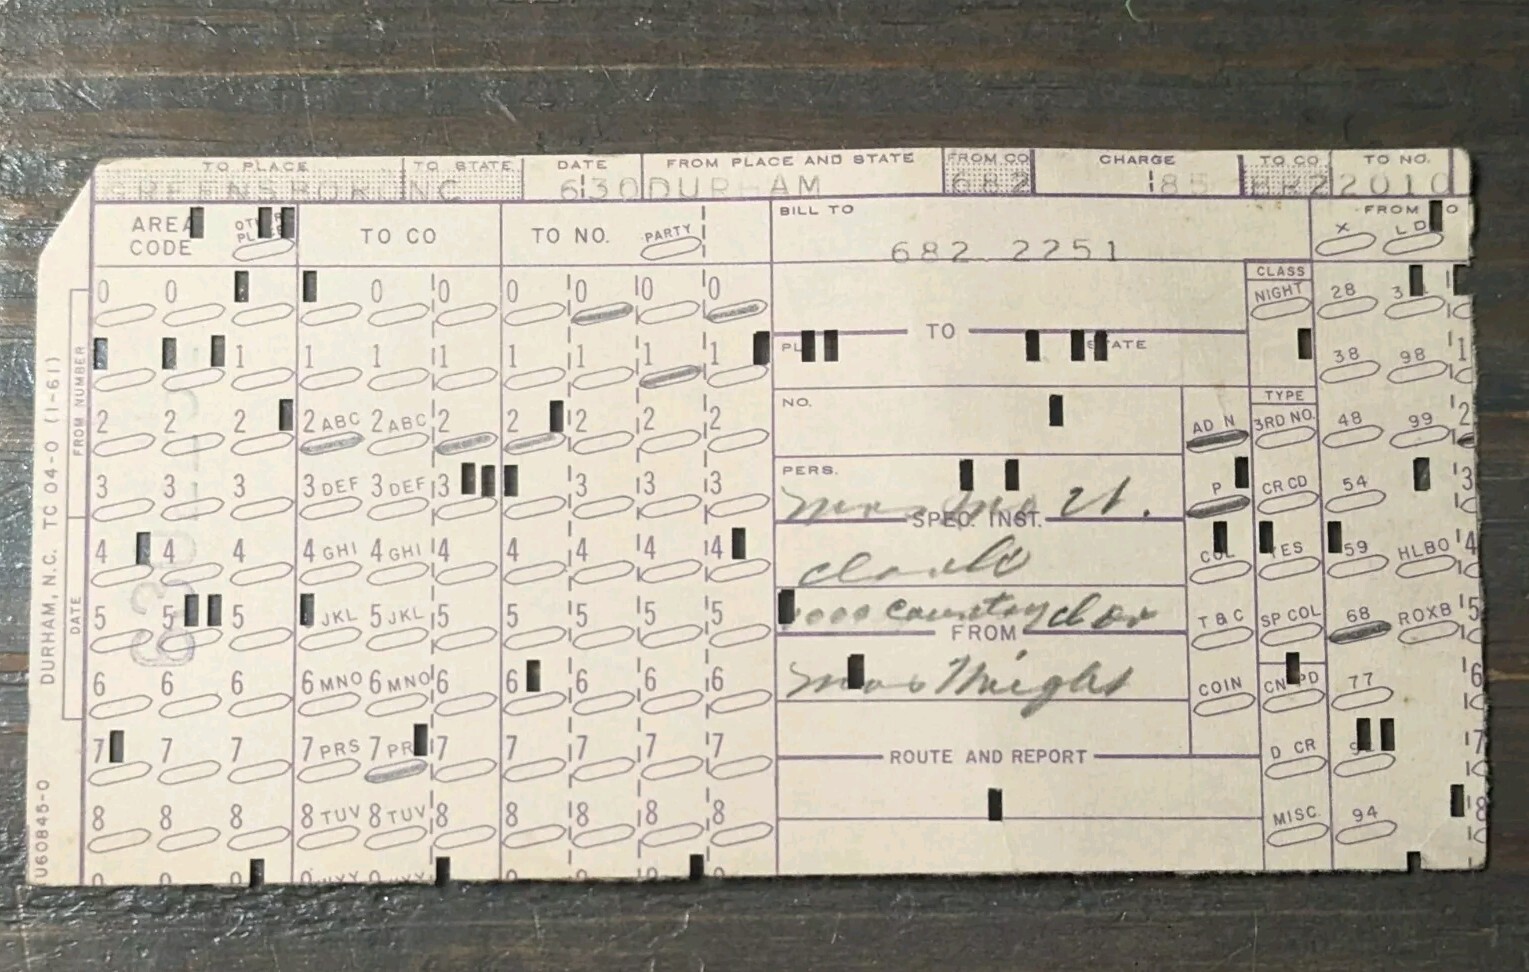 TO PLACE TO STATE DATE FROM PLACE AND STATE FROM CO CHARGE TO CO TO NO.
GREENSBORO NC 630 DURHAM 682 85 2010
AREA CODE TO CO TO NO. PARTY BILL TO FROM X LD
682 2251
CLASS
0 0 0 0 0 0 0 0 NIGHT 28
TO
1 1 1 1 1 1 1 STATE 38 98 1
TYPE
2 2 2 2 ABC 2 ABC 2 2 2 2 2 NO. AD N 3RD NO. 48 99 2
3 3 3 3 DEF 3 DEF 3 3 3 3 PERS. P CR CD 54 3
SPEC. INST.
4 4 4 4 GHI 4 GHI 4 4 4 4 4 COL YES 59 HLBO 4
5 5 JKL 5 JKL 5 5 5 5 5 country T & C SP COL 68 ROXB 5
FROM
6 6 6 6 MNO 6 MNO 6 6 6 6 6 COIN CN PD 77 6
7 7 7 7 PRS 7 PR 7 7 7 7 7 ROUTE AND REPORT D CR 7
8 8 8 8 TUV 8 TUV 8 8 8 8 8 MISC. 94 8
DURHAM, N.C. TC 04-0 (1-61)
FROM NUMBER
DATE
U60845-0